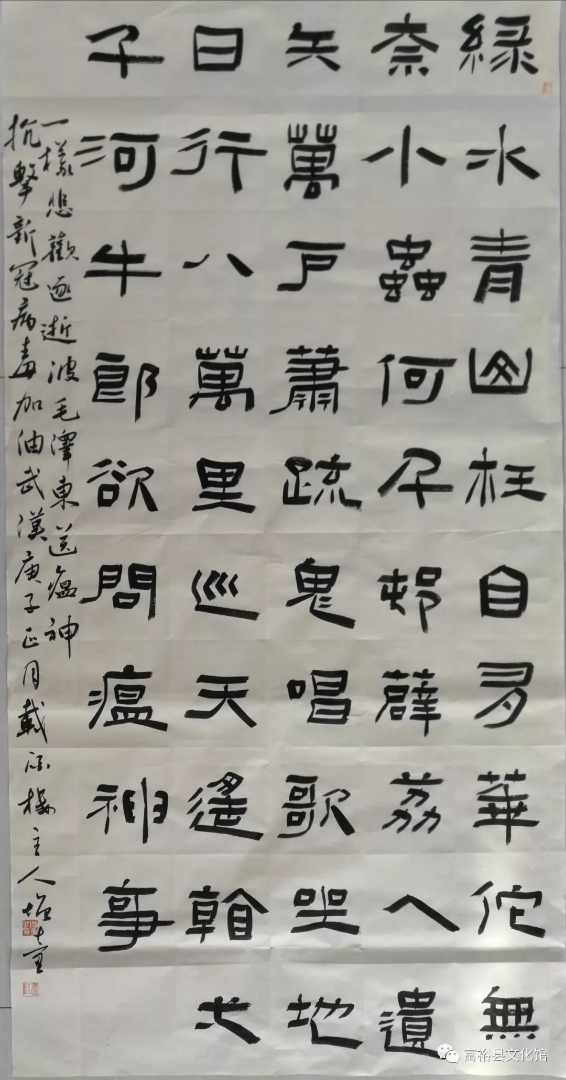 綠水青山枉自多華佗無
奈小蟲何千邨薜荔人遺
矢萬戶蕭疏鬼唱歌坐地
日行八萬里巡天遙看弌
千河牛郎欲問瘟神事
一樣悲歡逐逝波毛澤東送瘟神
抗擊新冠病毒加油武漢庚子正月載樓主人
富裕县文化馆